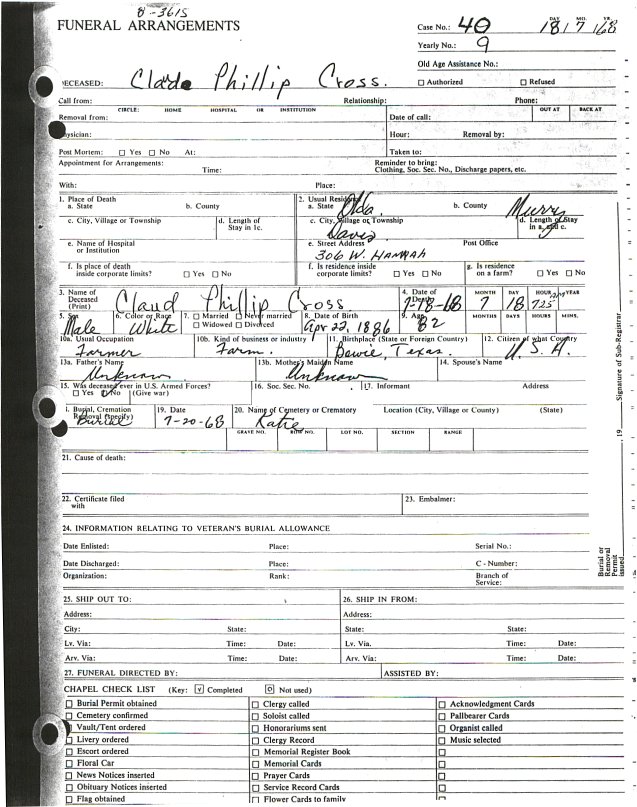 8-3615
FUNERAL ARRANGEMENTS
Case No.: 40
DAY MO. YR.
18 7 68
Yearly No.: 9
Old Age Assistance No.:
DECEASED: Clade Phillip Cross. Authorized Refused
Call from: Relationship: Phone:
CIRCLE: HOME HOSPITAL OR INSTITUTION OUT AT BACK AT
Removal from: Date of call:
Physician: Hour: Removal by:
Post Mortem: Yes No At: Taken to:
Appointment for Arrangements: Reminder to bring:
Time: Clothing, Soc. Sec. No., Discharge papers, etc.
With: Place:
1. Place of Death 2. Usual Residence
a. State b. County a. State Okla. b. County Murry
c. City, Village or Township d. Length of Stay in 1c. c. City, Village or Township Davis d. Length of Stay in a. and c.
e. Name of Hospital or Institution e. Street Address Post Office
306 W. HANNAH
f. Is place of death inside corporate limits? Yes No f. Is residence inside corporate limits? Yes No g. Is residence on a farm? Yes No
3. Name of Deceased (Print) Claud Phillip Cross 4. Date of Death 7-18-68 MONTH 7 DAY 18 HOUR 725 AM YEAR
5. Sex Male 6. Color or Race White 7. Married Never married Widowed Divorced 8. Date of Birth Apr 22, 1886 9. Age 82 MONTHS DAYS HOURS MINS.
10a. Usual Occupation Farmer 10b. Kind of business or industry Farm. 11. Birthplace (State or Foreign Country) Bowie, Texas. 12. Citizen of what Country U.S.A.
13a. Father's Name Unknown 13b. Mother's Maiden Name Unknown 14. Spouse's Name
15. Was deceased ever in U.S. Armed Forces? Yes No (Give war) 16. Soc. Sec. No. 17. Informant Address
Burial, Cremation Removal (specify) Burial 19. Date 7-20-68 20. Name of Cemetery or Crematory Katie Location (City, Village or County) (State)
GRAVE NO. ROW NO. LOT NO. SECTION RANGE
21. Cause of death:
22. Certificate filed with 23. Embalmer:
24. INFORMATION RELATING TO VETERAN'S BURIAL ALLOWANCE
Date Enlisted: Place: Serial No.:
Date Discharged: Place: C - Number:
Organization: Rank: Branch of Service:
25. SHIP OUT TO: 26. SHIP IN FROM:
Address: Address:
City: State: State: State:
Lv. Via: Time: Date: Lv. Via. Time: Date:
Arv. Via: Time: Date: Arv. Via: Time: Date:
27. FUNERAL DIRECTED BY: ASSISTED BY:
CHAPEL CHECK LIST (Key: V Completed O Not used)
Burial Permit obtained Clergy called Acknowledgment Cards
Cemetery confirmed Soloist called Pallbearer Cards
Vault/Tent ordered Honorariums sent Organist called
Livery ordered Clergy Record Music selected
Escort ordered Memorial Register Book
Floral Car Memorial Cards
News Notices inserted Prayer Cards
Obituary Notices inserted Service Record Cards
Flag obtained Flower Cards to family
Burial or Removal Permit issued 19 Signature of Sub-Registrar